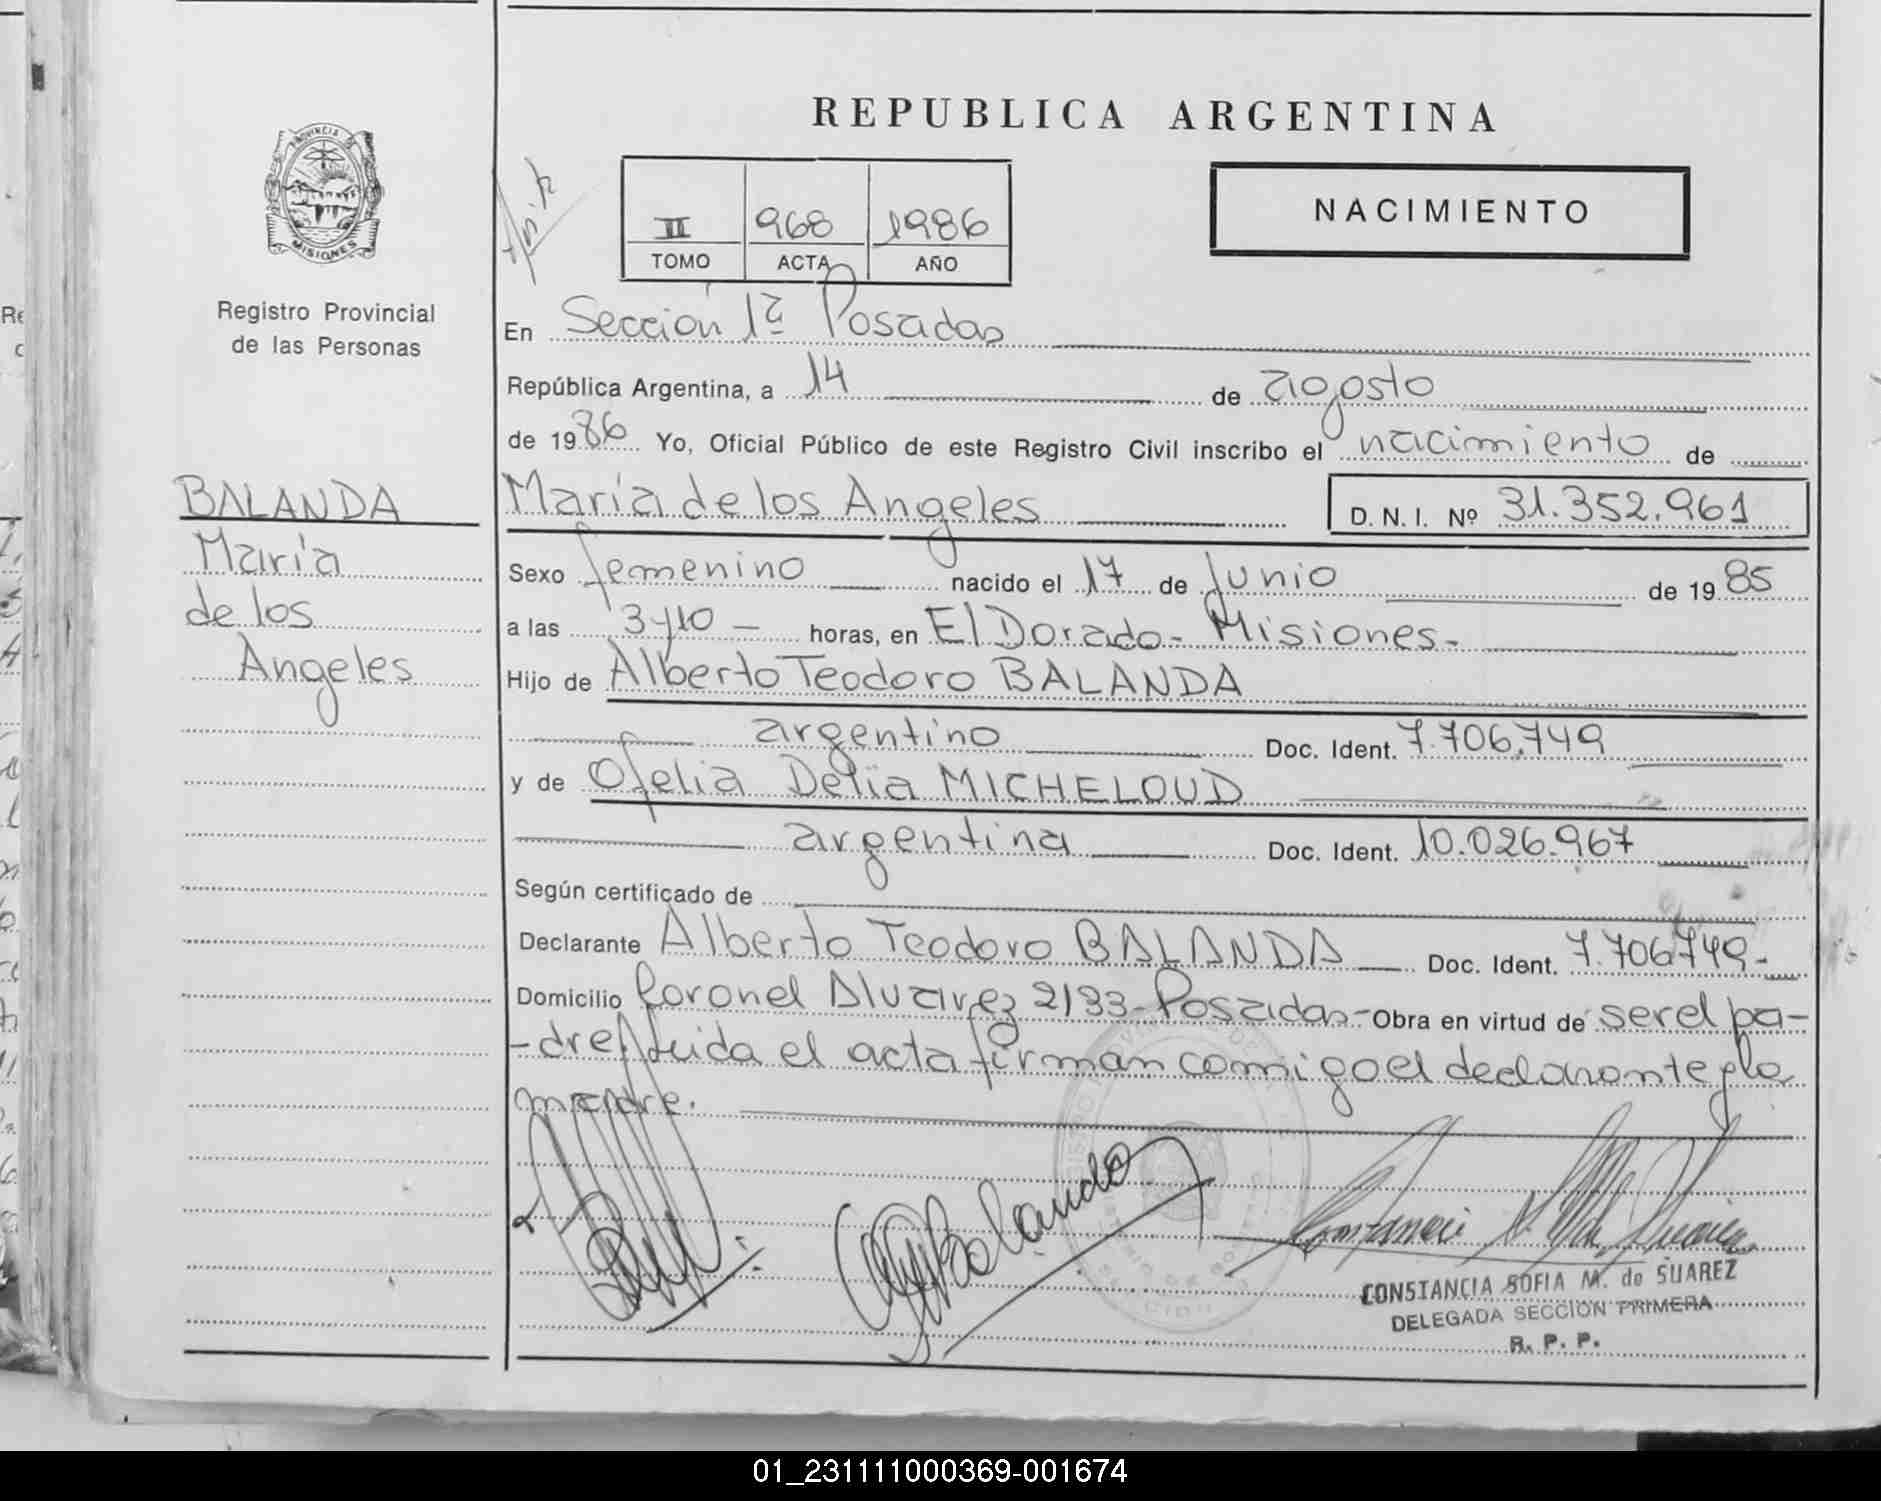 REPUBLICA ARGENTINA
PROVINCIA DE
MISIONES
Registro Provincial
de las Personas
II 968 1986
TOMO ACTA AÑO
NACIMIENTO
En Sección 1ª Posadas
República Argentina, a 14 de agosto
de 1986 Yo, Oficial Público de este Registro Civil inscribo el nacimiento de
BALANDA
María
de los
Angeles
María de los Angeles D. N. I. Nº 31.352.961
Sexo femenino nacido el 17 de Junio de 1985
a las 3y10 – horas, en El Dorado - Misiones -
Hijo de Alberto Teodoro BALANDA
argentino Doc. Ident. 7.706.749
y de Ofelia Delia MICHELOUD
argentina Doc. Ident. 10.026.967
Según certificado de
Declarante Alberto Teodoro BALANDA Doc. Ident. 7.706.749-
Domicilio Coronel Alvarez 2133 - Posadas - Obra en virtud de ser el pa-
-dre, leida el acta firman comigo el declarante y la
madre.
Balanda
CONSTANCIA SOFIA M. de SUAREZ
DELEGADA SECCION PRIMERA
R. P. P.
01_231111000369-001674